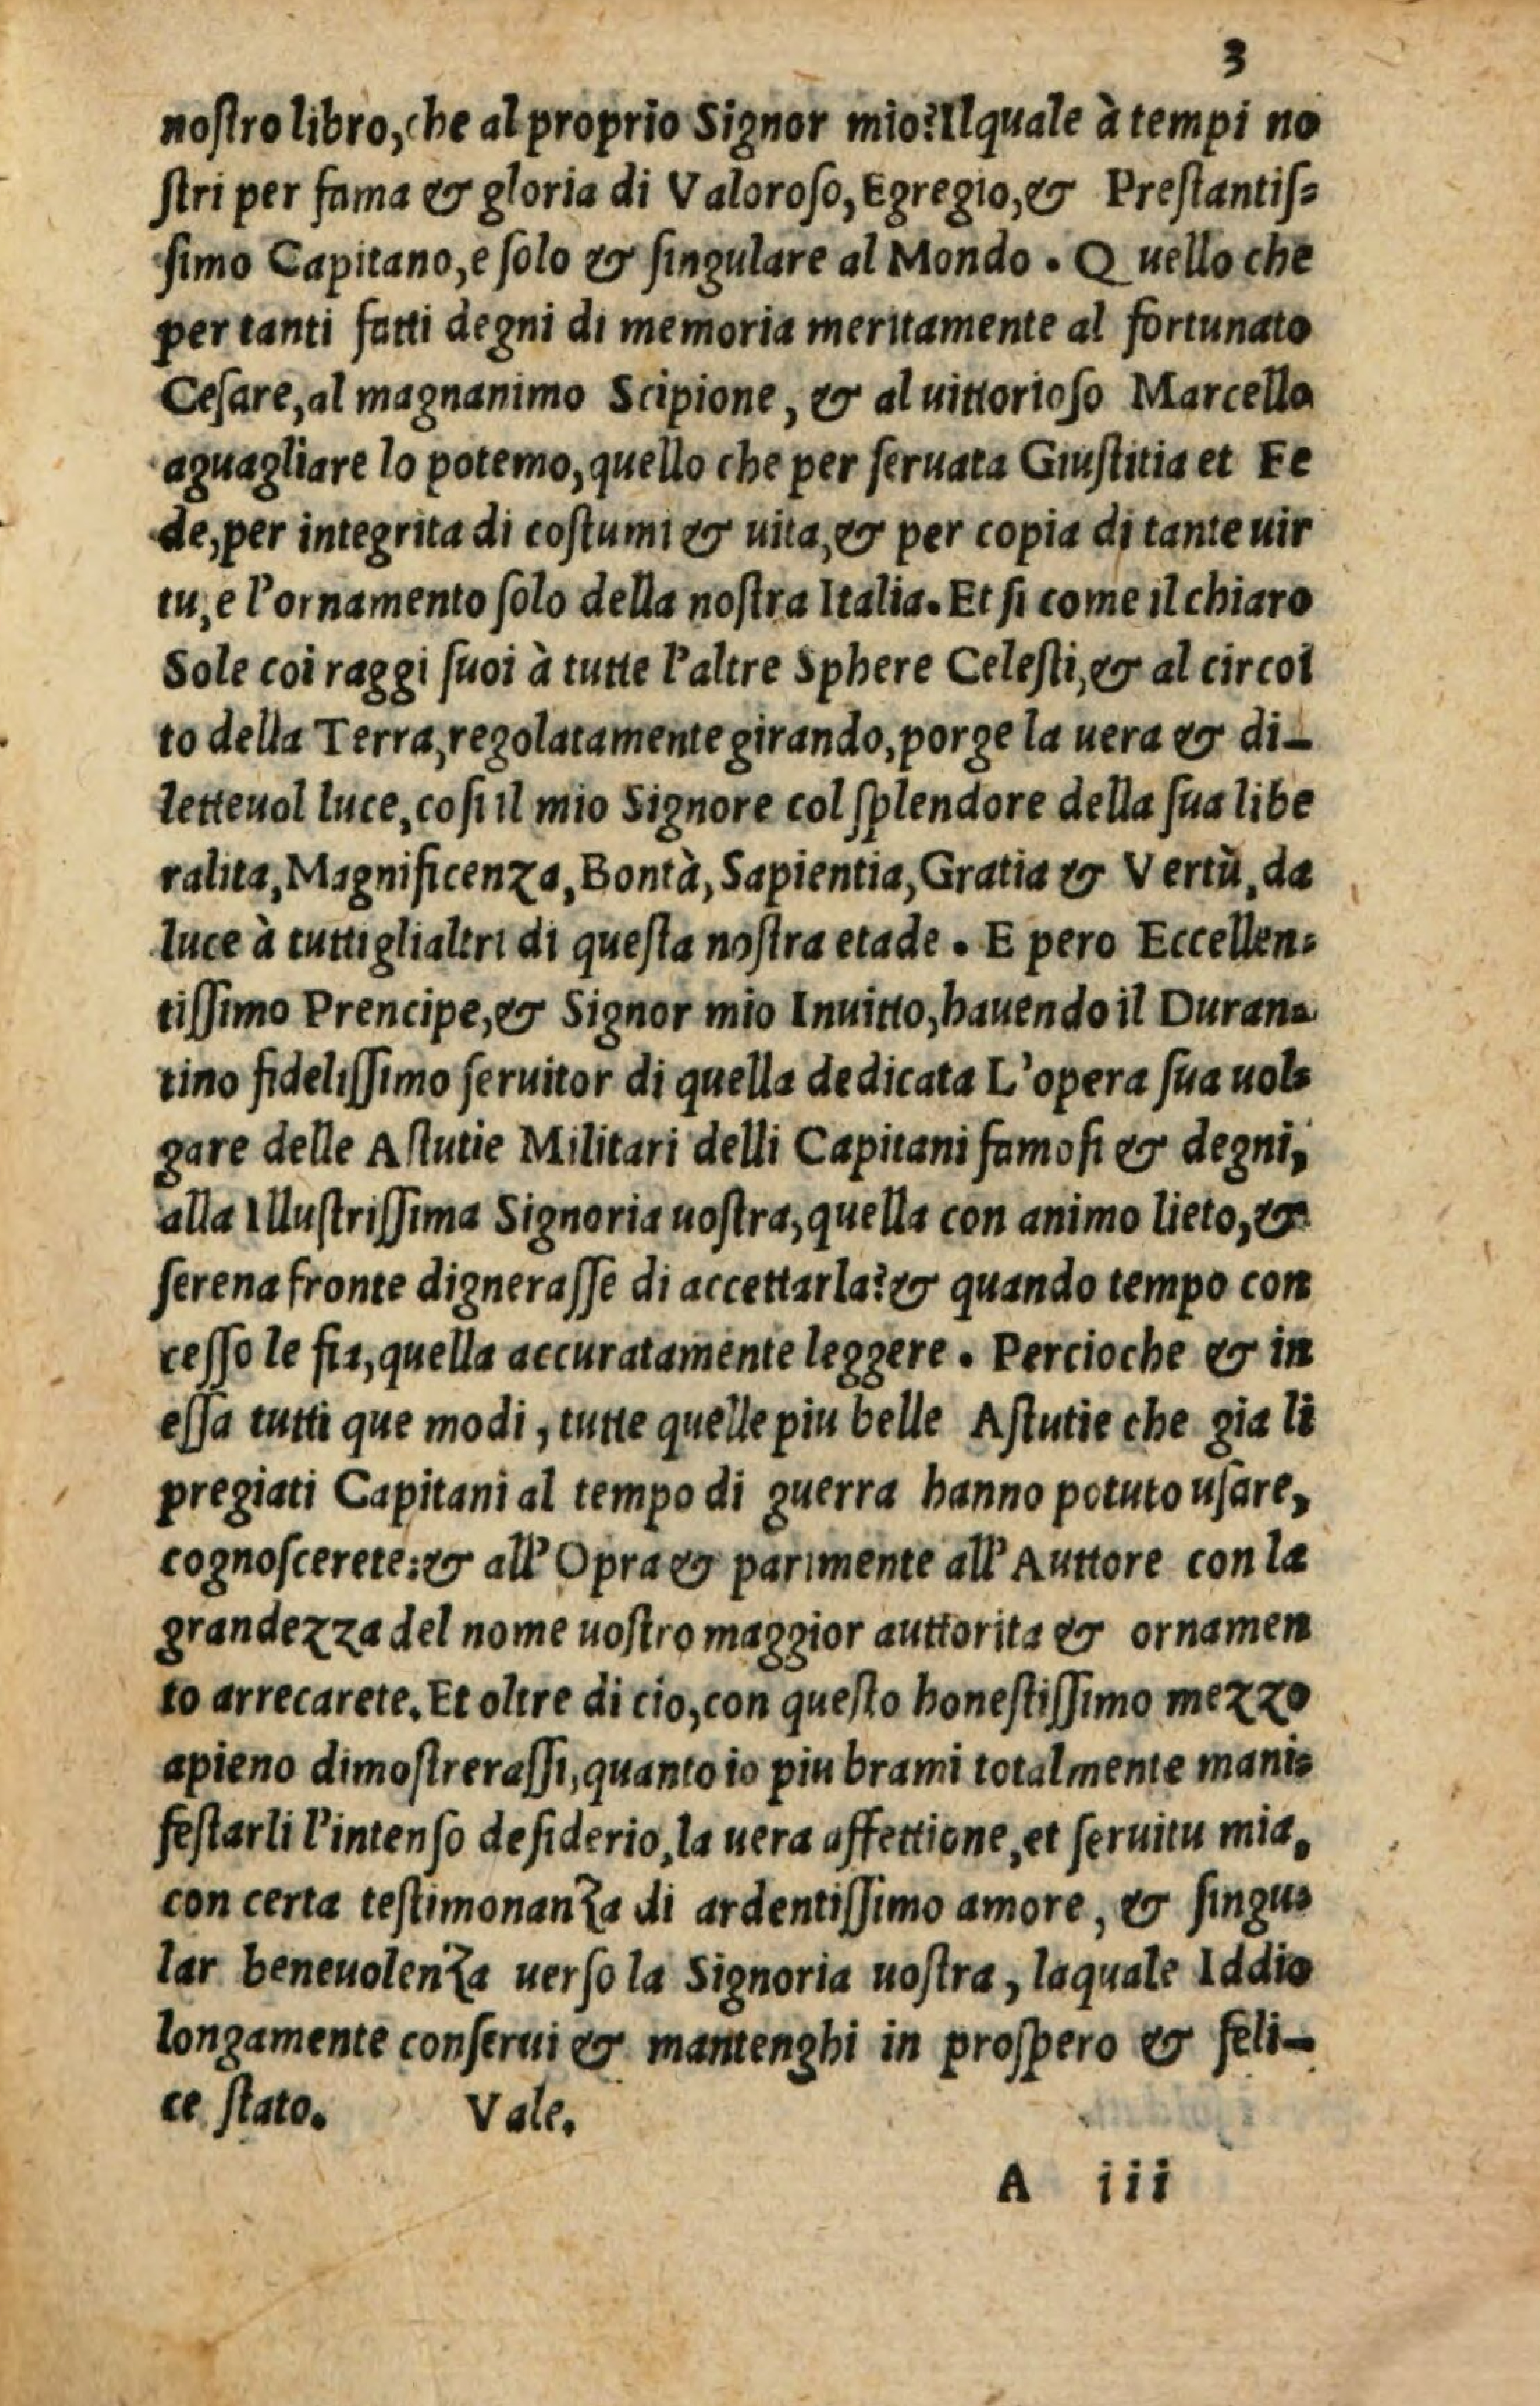 3
noſtro libro, che al proprio Signor mio? Ilquale à tempi no
ſtri per fama & gloria di Valoroſo, Egregio, & Preſtantiſ=
ſimo Capitano, e ſolo & ſingulare al Mondo. Quello che
per tanti fatti degni di memoria meritamente al fortunato
Ceſare, al magnanimo Scipione, & al uittorioſo Marcello
aguagliare lo potemo, quello che per ſeruata Giuſtitia et Fe
de, per integrita di coſtumi & uita, & per copia di tante uir
tu, e l'ornamento ſolo della noſtra Italia. Et ſi come il chiaro
Sole coi raggi ſuoi à tutte l'altre Sphere Celeſti, & al circoi
to della Terra, regolatamente girando, porge la uera & di-
letteuol luce, coſi il mio Signore col ſplendore della ſua libe
ralita, Magnificenza, Bontà, Sapientia, Gratia & Vertù, da
luce à tutti glialtri di queſta noſtra etade. E pero Eccellen=
tiſſimo Prencipe, & Signor mio Inuitto, hauendo il Duran=
tino fideliſſimo ſeruitor di quella dedicata L'opera ſua uol=
gare delle Aſtutie Militari delli Capitani famoſi & degni,
alla Illuſtriſſima Signoria uoſtra, quella con animo lieto, &
ſerena fronte digneraſſe di accettarla? & quando tempo con
ceſſo le fia, quella accuratamente leggere. Percioche & in
eſſa tutti que modi, tutte quelle piu belle Aſtutie che gia li
pregiati Capitani al tempo di guerra hanno potuto uſare,
cognoſcerete: & all'Opra & parimente all'Auttore con la
grandezza del nome uoſtro maggior auttorita & ornamen
to arrecarete. Et oltre di cio, con queſto honeſtiſſimo mezzo
apieno dimoſtreraſſi, quanto io piu brami totalmente mani=
feſtarli l'intenſo deſiderio, la uera affettione, et ſeruitu mia,
con certa teſtimonanza di ardentiſſimo amore, & ſingu=
lar beneuolenza uerſo la Signoria uoſtra, laquale Iddio
longamente conſerui & mantenghi in proſpero & feli-
ce ſtato. Vale.
A iii